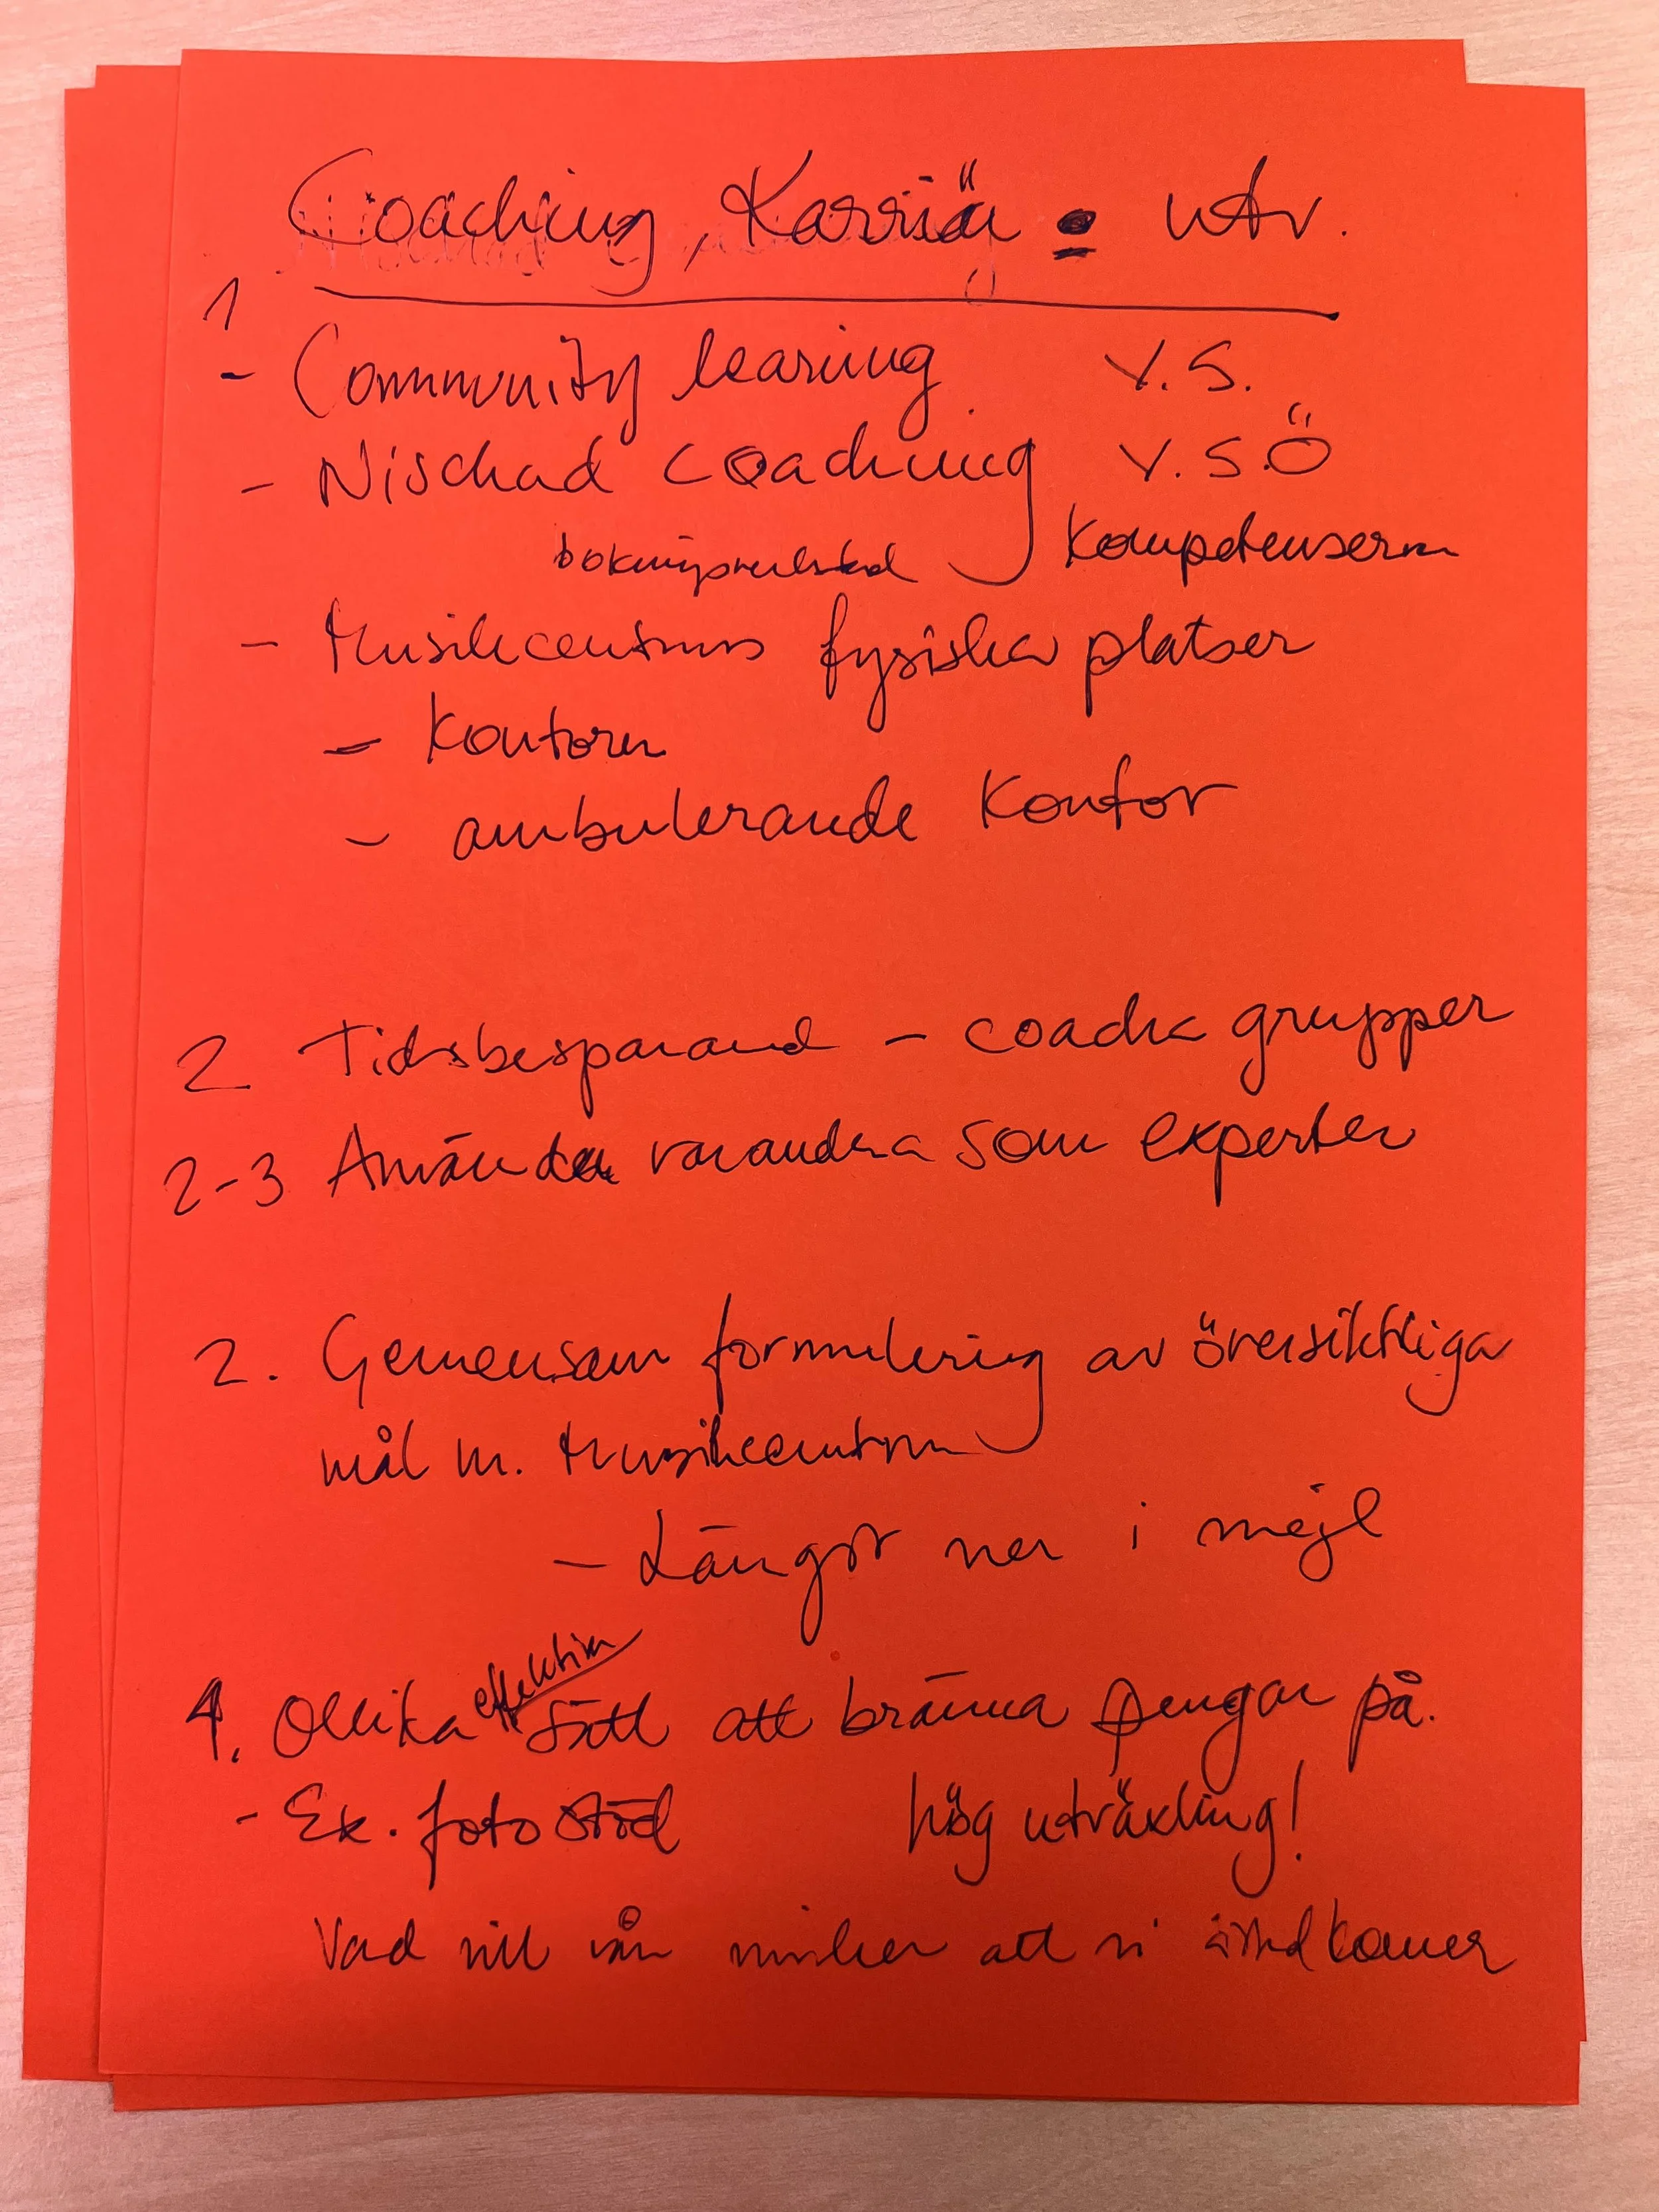 Coaching, Karriär - utv.
1
- Community learning V.S.
- Nischad coaching V.S.Ö
bokningsverkstad kompetenserna
- Musikcentrums fysiska platser
- Kontoren
- ambulerande kontor
2 Tidsbesparand - coacha grupper
2-3 Använda varandra som experter
2. Gemensam formulering av översiktliga
mål m. Musikcentrum
- Längst ner i mejl
4. Olika effektiva sätt att bränna pengar på.
- Ex. fotostöd hög utväxling!
Vad vill vår att vi åstadkommer